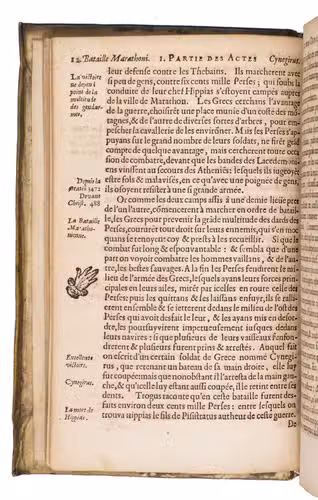 12 Bataille Marathoni. 1. PARTIE DES ACTES Cynegirus.
leur defense contre les Thebains. Ils marcherent avec
si peu de gens, contre six cents mille Perses; qui soubs la
conduite de leur chef Hippias s'estoyent campés aupres
de la ville de Marathon. Les Grecs cerchans l'avantage
de la guerre, choisirẽt une place munie d'un costé des mõ-
tagnes, & de l'autre de diverses sortes d'arbres, pour em-
pescher la cavallerie de les environner. Mais les Perses s'ap-
puyans sur le grand nombre de leurs soldats, ne firẽt
compte de quelque avantage, mais cercherent toute occa-
sion de combatre, devant que les bandes des Lacedem
ens vinssent au secours des Atheniẽs: lesquels ils jugeoyẽt
estre fols & mal avisés, en ce qu'avec une poignée de gens,
ils osoyent resister à une si grande armée.
Or comme les deux camps assis à une demie lieuë pres
de l'un l'autre, cõmencerent à marcher en ordre de batail-
le, les Grecs pour prevenir la grãde multitude des dards des
Perses, coururẽt tout droit sur leurs ennemis, qui s'en moc-
quans se tenoyent coy & prests à les recueillir. Si que le
combat fut long & espouvantable: & sembla que d'une
part on voyoit combatre les hommes vaillans, & de l'au-
tre, les bestes sauvages. A la fin les Perses fendirent le mi-
lieu de l'armée des Grecs, lesquels ayans leurs forces prin-
cipales en leurs ailes, mirẽt par icelles en route celle des
Perses: puis les quittans & les laissans enfuyr, ils se rallie-
rent ensemble & se jetterent dedans le milieu de l'ost des
Perses qui avoit desfait le leur, & les ayans mis en desor-
dre, les poursuyvirent impetueusement jusques dedans
leurs navires: si que plusieurs de leurs vaisseaux fonfon-
drerent & plusieurs furent prins & arrestés. Auquel fait
on escrit d'un certain soldat de Grece nommé Cynegi-
rus, que retenant un bateau de sa main droite, elle luy
fut coupée: mais que nonobstant il l'arresta de la main gau-
che, & qu'icelle luy estant aussi coupée, il le retint entre ses
dents. Trogus raconte qu'en ceste bataille furent des-
faits environ deux cents mille Perses: entre lesquels on
trouva Hippias le fils de Pisistratus autheur de ceste guerre.
De
La victoire
ne depend
point de la
multitude
des gendar-
mes.
Depuis la
creation 3472
Devant
Christ. 488
La Bataille
Maratho-
nienne.
Excellente
victoire.
Cynegirus.
La mort de
Hippias.